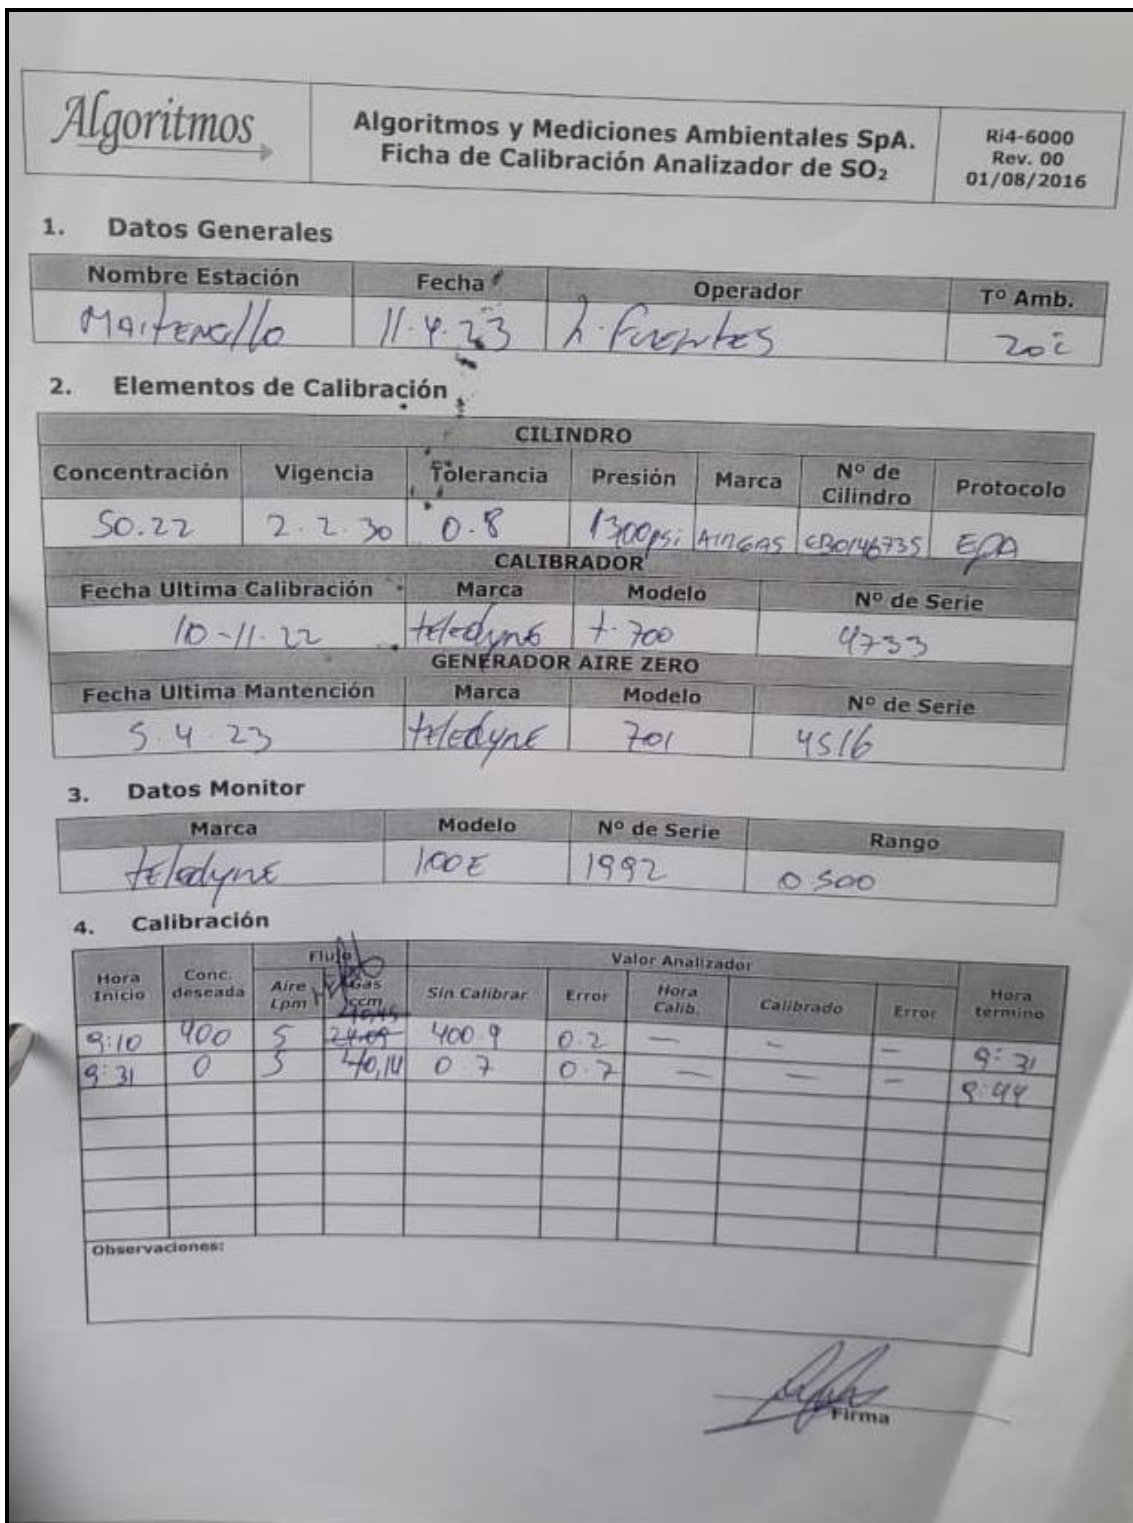 Algoritmos
Algoritmos y Mediciones Ambientales SpA.
Ficha de Calibración Analizador de SO₂
Ri4-6000
Rev. 00
01/08/2016
1. Datos Generales
Nombre Estación Fecha Operador Tº Amb.
Maitencillo 11.4.23 h. Fuentes 20ºc
2. Elementos de Calibración
CILINDRO
Concentración Vigencia Tolerancia Presión Marca Nº de Cilindro Protocolo
50.22 2.2.30 0.8 1300psi AIRGAS EB0146735 EPA
CALIBRADOR
Fecha Ultima Calibración Marca Modelo Nº de Serie
10-11.22 teledyne t-700 4733
GENERADOR AIRE ZERO
Fecha Ultima Mantención Marca Modelo Nº de Serie
5.4.23 teledyne 701 4516
3. Datos Monitor
Marca Modelo Nº de Serie Rango
teledyne 100E 1992 0 500
4. Calibración
Flujo Valor Analizador
Hora Inicio Conc. deseada Aire Lpm Gas ccm Sin Calibrar Error Hora Calib. Calibrado Error Hora termino
9:10 400 5 400.9 0.2 — — — 9:31
9:31 0 5 40,14 0.7 0.7 — — — 9:44
Observaciones:
Firma